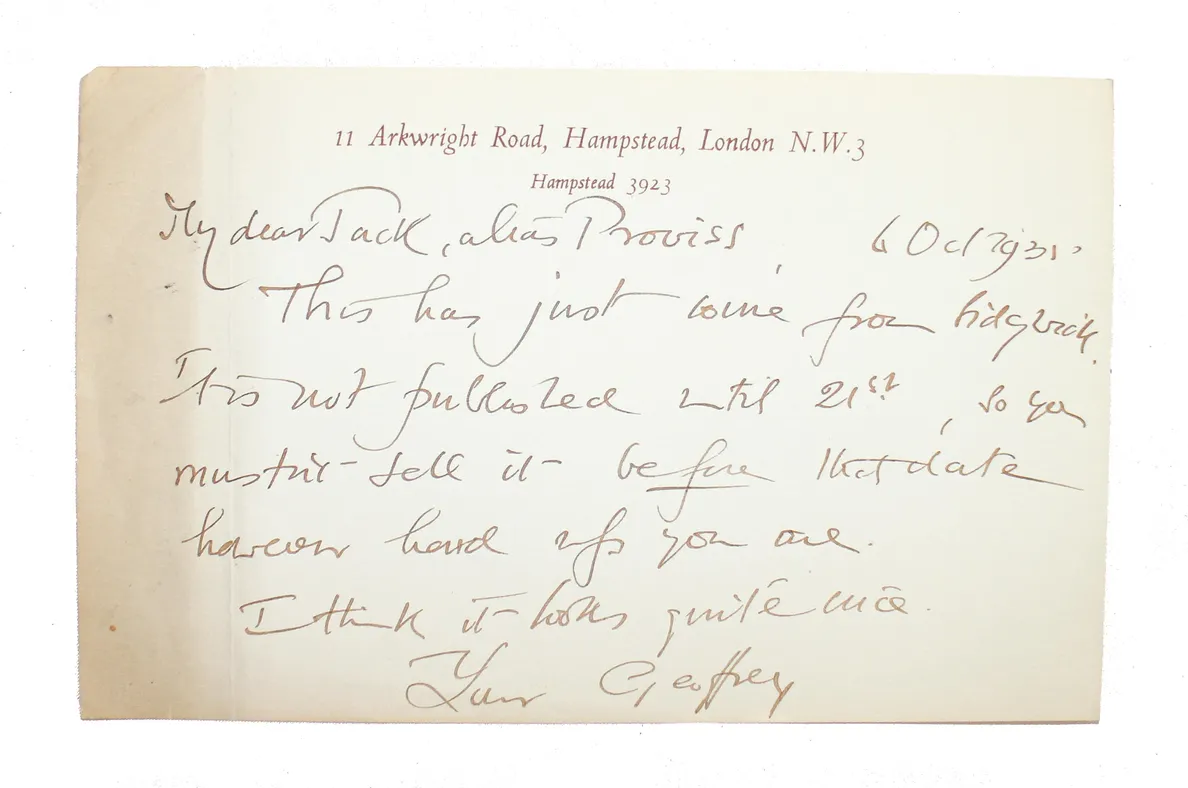 11 Arkwright Road, Hampstead, London N.W.3
Hampstead 3923
My dear Jack, alias Proviss, 6 Oct 1931.
This has just come from Sidgwick.
It is not published until 21st, so you
mustn't sell it before that date
however hard up you are.
I think it looks quite nice.
Your Geoffrey